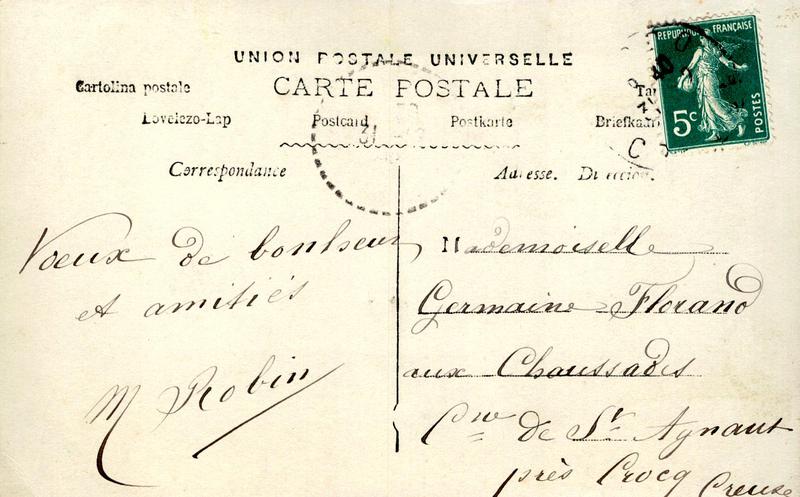 UNION POSTALE UNIVERSELLE
CARTE POSTALE
Cartolina postale
Levelezo-Lap Postcard Postkarte Briefkaart
RÉPUBLIQUE FRANÇAISE
5c POSTES
31
Correspondance
Adresse. Direccion.
Voeux de bonheur
et amitiés
M Robin
Mademoiselle
Germaine Florand
aux Chaussades
Cne de St Agnant
près Crocq Creuse